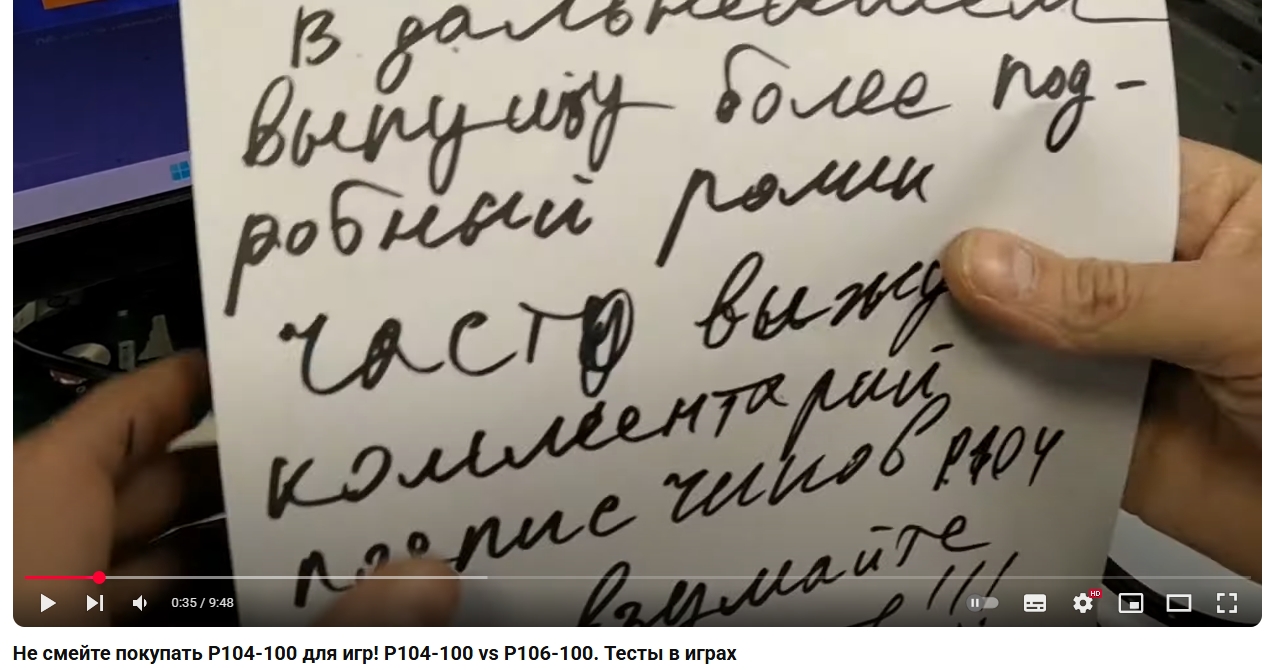 В дальнейшем
выпущу более под-
робный ролик
часто вижу
комментарии
подписчиков P104
взумайте
!!!
0:35 / 9:48
HD
Не смейте покупать P104-100 для игр! P104-100 vs P106-100. Тесты в играх